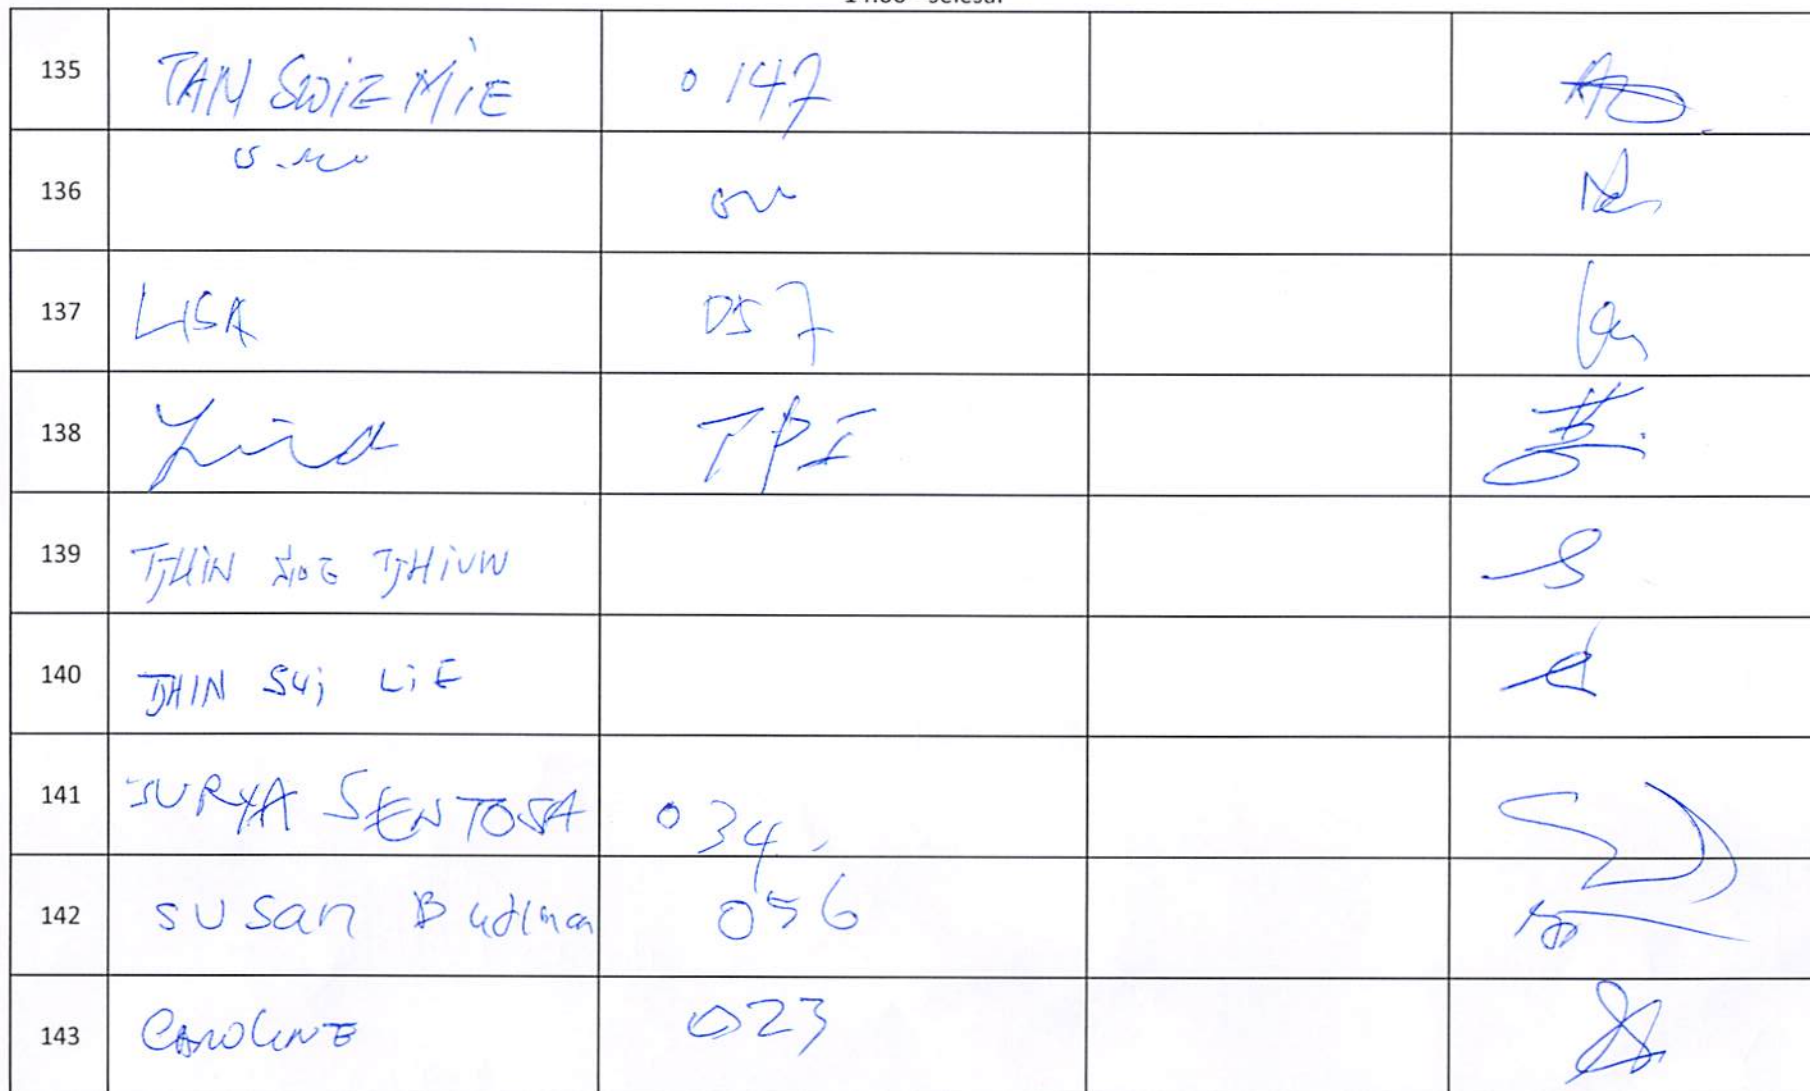 14.00 - selesai
135 TAN SWIE MIE 0147
136
137 LISA 057
138 Linda TPI
139 TJHIN TJHIUW
140 TJHIN SUi LiE
141 SURYA SENTOSA 034
142 SUSan Budiman 056
143 CAROLINE 023